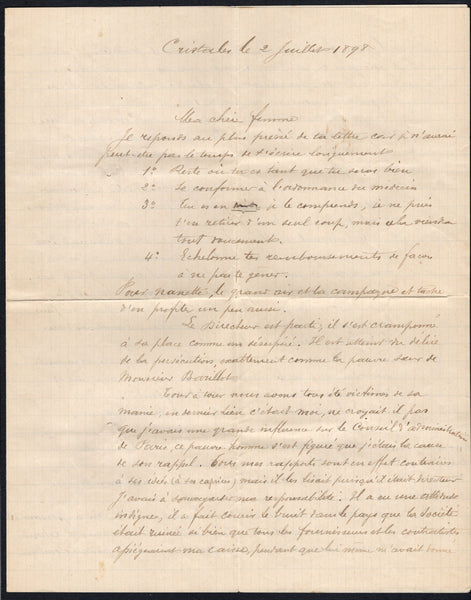 Cristales le 2 Juillet 1898
Ma chère femme
Je réponds au plus pressé de ta lettre car je n'aurai
peut-être pas le temps de t'écrire longuement
1º Reste où tu es tant que tu seras bien
2º Se conformer à l'ordonnance du médecin
3º Tu es en je le comprends, je ne puis
t'en retirer d'un seul coup, mais cela viendra
tout doucement.
4º Echelonne tes remboursements de façon
à ne pas te gener.
Pour nanette, le grand air et la campagne et tache
d'en profiter un peu aussi.
Le Directeur est parti, il s'est cramponné
à sa place comme un désespéré. Il est atteint du délire
de la persécution, exactement comme la pauvre sœur de
Monsieur
Tour à tour nous avons tous été victimes de sa
manie, en dernier lieu c'était moi, ne croyait il pas
que j'avais une grande influence sur le Conseil d'administration
de Paris, ce pauvre homme s'est figuré que j'étais la cause
de son rappel. Tous mes rapports sont en effet contraires
à ses idées (à sa copie) mais il les lisait puisqu'il était directeur
J'avais à sauvegarder ma responsabilité. Il a eu une attitude
indigne, il a fait courir le bruit dans le pays que la Société
était ruinée si bien que tous les fournisseurs et les contratistes
assiégeaient ma caisse, pendant que lui même m'avait